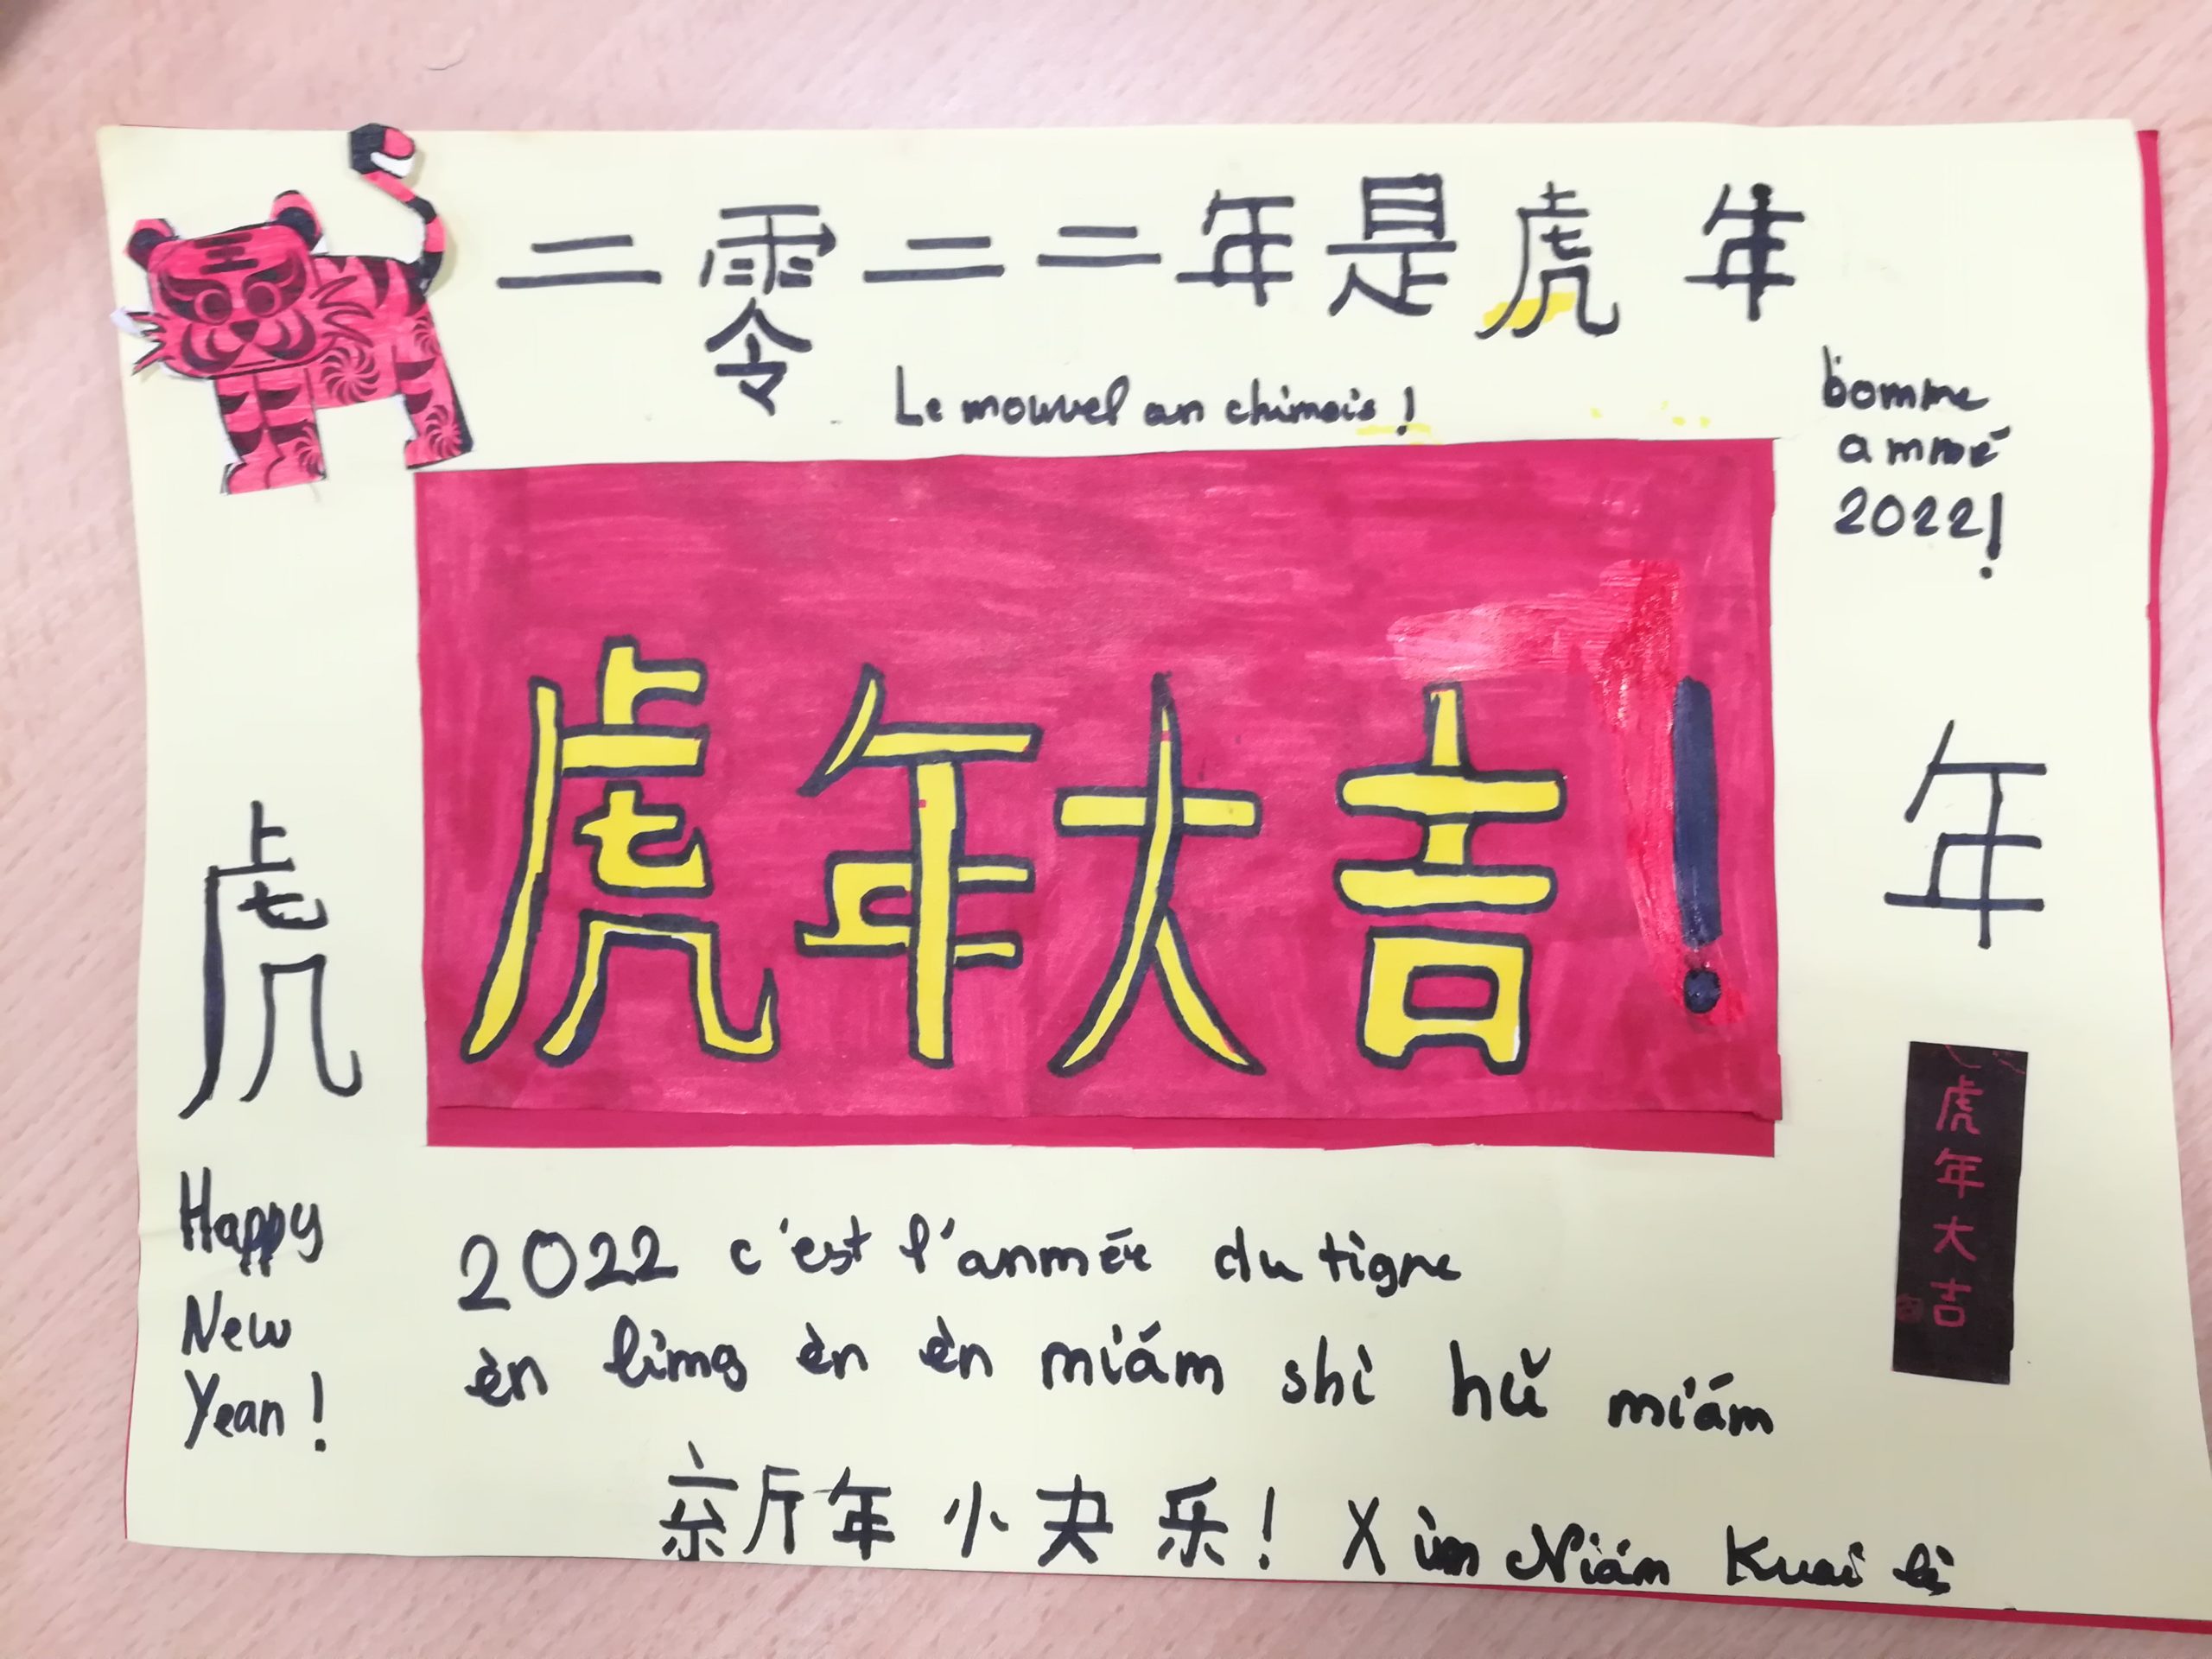 二零二二年是虎年
Le nouvel an chinois !
bonne
anné
2022!
虎年大吉!
虎
年
虎年大吉
Happy
New
Year!
2022 c'est l'année du tigre
èr líng èr èr nián shì hǔ nián
新年快乐! Xīn Nián Kuai lè